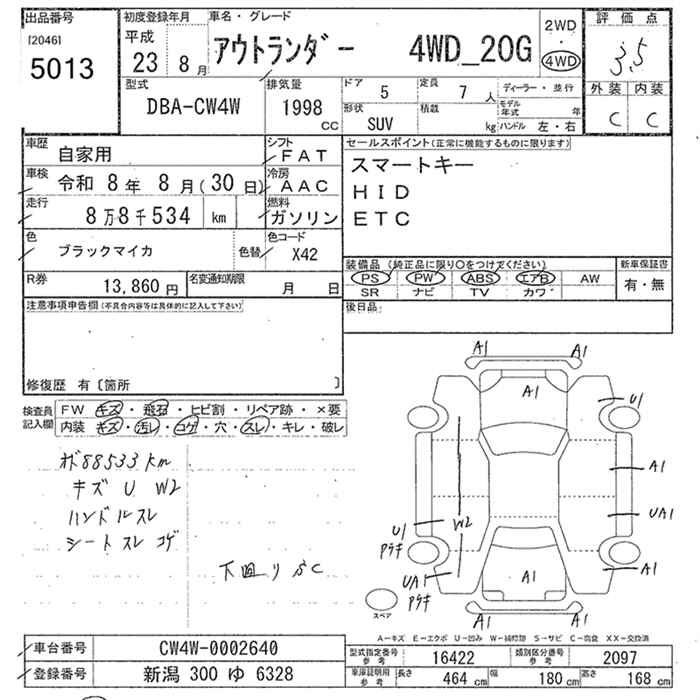 出品番号 初度登録年月 車名・グレード 2WD 評価点
[2046] 平成 アウトランダー 4WD_20G ・ 3.5
5013 23 8月 4WD 外装 内装
型式 排気量 ドア 5 定員 7人 ディーラー・並行 C C
DBA-CW4W 1998 cc 形状 SUV 積載 kg モデル年式 年
ハンドル 左・右
車歴 自家用 シフト FAT セールスポイント(正常に機能するものに限ります)
車検 令和 8年 8月(30日) 冷房 AAC スマートキー
走行 8万8千534 km 燃料 ガソリン HID
色 ブラックマイカ 色替 色コード X42 ETC
R券 13,860円 名変通知期限 月 日 装備品(純正品に限り○をつけてください) 新車保証書
PS PW ABS エアB AW 有・無
SR ナビ TV カワ
注意事項申告欄(不具合内容等は具体的に記入して下さい) 後日品
修復歴 有〔箇所 〕
検査員記入欄 FW キズ・飛石・ヒビ割・リペア跡・×要
内装 キズ・汚レ・コゲ・穴・スレ・キレ・破レ
メーター 88533km
キズ U W2
ハンドルスレ
シートスレ コゲ
下廻りSC
A1 A1
A1 U1
A1
UA1
U1 W2
UA1 A1 A1
A1 A1
スペア
A-キズ E-エクボ U-凹み W-補修跡 S-サビ C-腐食 XX-交換済
車台番号 CW4W-0002640 型式指定番号 参考 16422 類別区分番号 参考 2097
登録番号 新潟 300 ゆ 6328 車庫証明用 参考 長さ 464 cm 幅 180 cm 高さ 168 cm